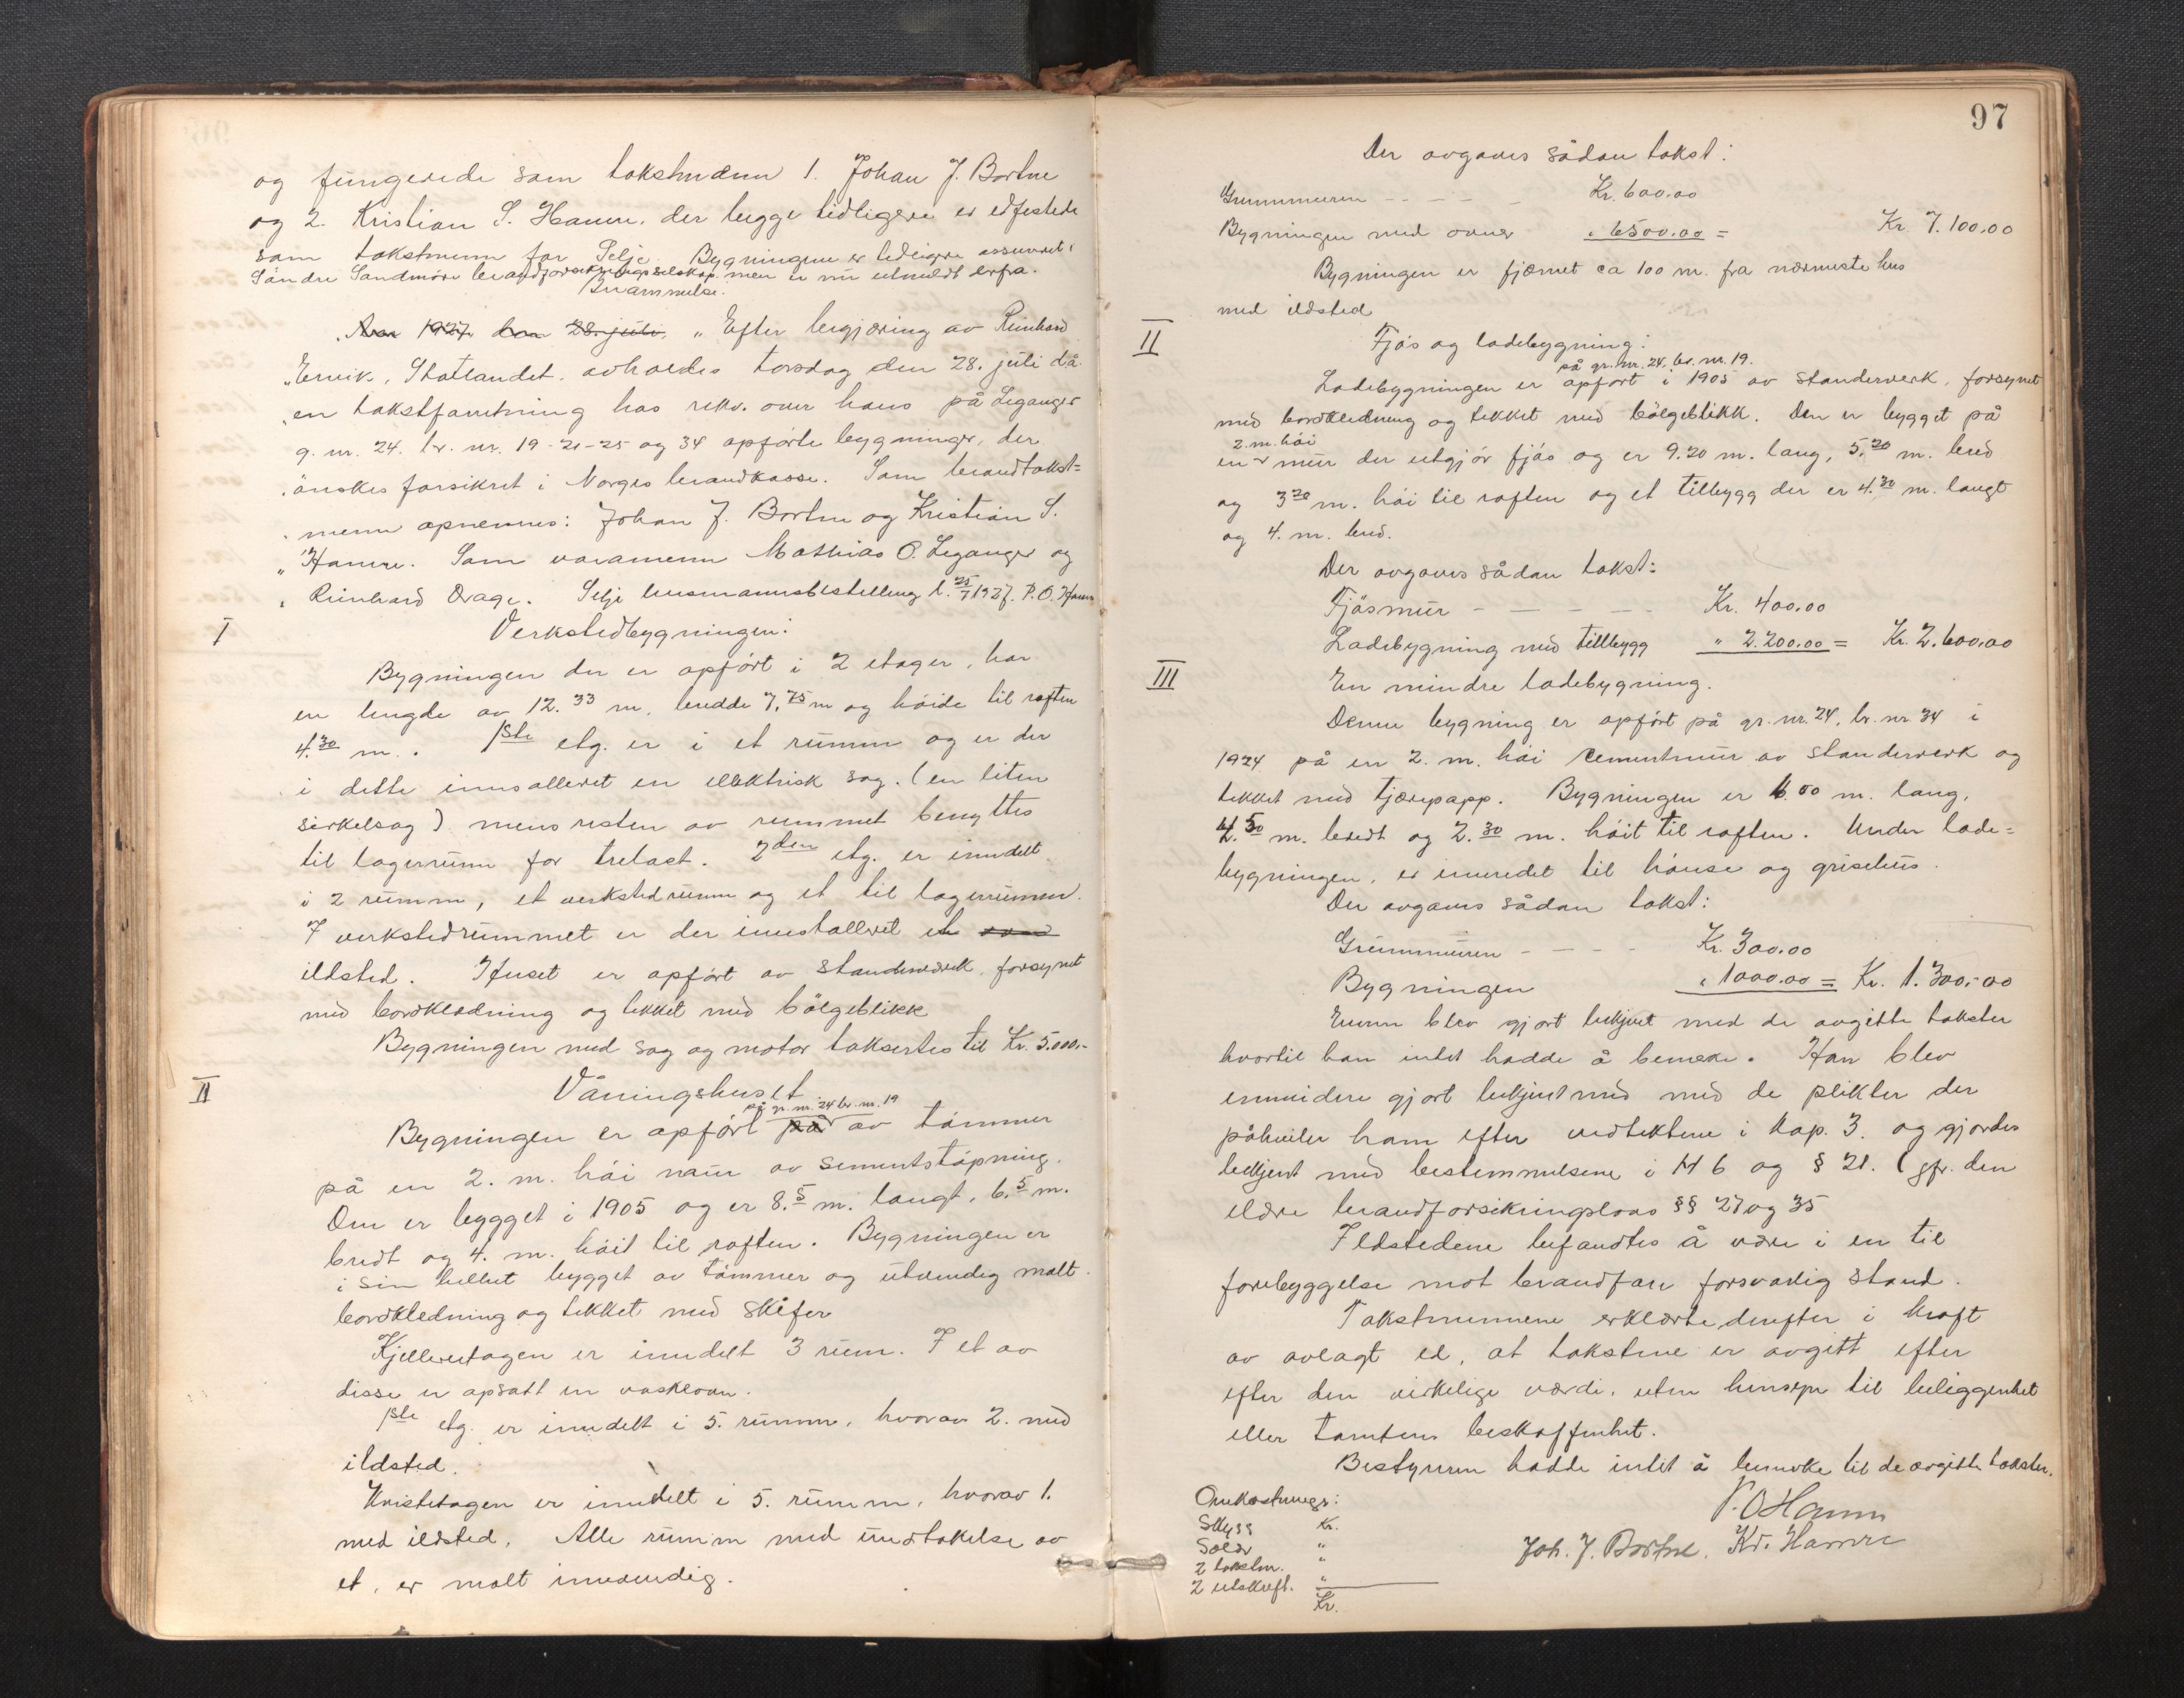 og fungerede som takstmænn 1. Johan J. Bortne
og 2. Kristian S. Hamre, der begge tidligere er edfestede
som takstmenn for Selje. Bygningene er tidligere assurert i
Söndre Söndmöre brandforsikringsselskap men er nu utmeldt derfra.
Brammelse:
Aar 1927 den 28. juli, „Efter begjæring av Reinhard
„Ervik, Statlandet, avholdes torsdag den 28. juli då.
„en takstforretning hos rekv. over hans på Leganger
g. nr. 24. br. nr. 19-21-25 og 34 opförte bygninger, der
„önskes forsikret i Norges brandkasse. Som brandtakst=
„menn opnevnes: Johan J. Bortne og Kristian S.
„Hamre. Som varamenn Mathias O. Leganger og
„Reinhard Drage. Selje lensmannsbestilling d. 25/7 1927. P. O. Hamre
I
Verkstedbygningen:
Bygningen der er opfört i 2 etager, har
en lengde av 12.33 m, bredde 7,75 m og höide til raften
4.30 m. 1ste etg. er i et rumm og er der
i dette innsalleret en ellektrisk sag. (en liten
sirkelsag) mens resten av rummet benyttes
til lagerrumm for trelast. 2den etg. er inndelt
i 2 rumm, et verkstedrumm og et til lagerrumm.
I verkstedrummet er der innstalleret et
ildsted. Huset er opfört av standerværk, forsynet
med bordkledning og tekket med bölgeblikk
Bygningen med sag og motor taksertes til Kr. 5.000,-
II
Våningshuset
på gr. nr. 24 br. nr. 19
Bygningen er opfört på av tömmer
på en 2. m. häi mur av sementstöpning.
Den er bygget i 1905 og er 8.5 m. langt, 6.5 m.
bredt og 4. m. höit til raften. Bygningen er
i sin helhet bygget av tömmer og utvendig malt
bordkledning og tekket med skifer
Kjelleretagen er inndelt 3 rum. I et av
disse er opsatt en vaskeovn.
1ste etg. er inndelt i 5. rumm, hvorav 2. med
ildsted.
Kvistetagen er inndelt i 5. rumm, hvorav 1.
med ildsted. Alle rumm med undtakelse av
et, er malt innvendig.
97
Der avgaves sådan takst:
Grunnmuren - - - - Kr. 600.00
Bygningen med ovner „ 6500.00 = Kr. 7.100,00
Bygningen er fjærnet ca 100 m. fra nærmeste hus
med ildsted
II
Fjös og ladebygning:
på gr. nr. 24, br. nr. 19.
Ladebygningen er opfört i 1905 av standerverk, forsynet
med bordkledning og tekket med bölgeblikk. Den er bygget på
2. m. höi
en mur der utgjör fjös og er 9.20 m. lang, 5.20 m. bred
og 3.20 m. höi til raften og et tilbygg der er 4.30 m. langt
og 4. m. bred.
Der avgaves sådan takst:
Fjösmur - - - - - Kr. 400.00
Ladebygning med tillbygg „ 2.200.00 = Kr. 2.600.00
III
En mindre ladebygning.
Denne bygning er opfört på gr. nr. 24, br. nr 34 i
1924 på en 2. m. höi cementmur av standerverk og
tekket med tjærepapp. Bygningen er 6.00 m. lang,
4.50 m. bredt og 2.30 m. höit til raften. Under lade=
bygningen, er innredet til hönse og grisehus.
Der avgaves sådan takst:
Grunnmuren - - - - Kr. 300.00
Bygningen „ 1000.00 = Kr. 1.300,00
Eieren blev gjort bekjent med de avgitte takster
hvortil han intet hadde å bemerke. Han blev
ennvidere gjort bekjent med med de plikter der
påhviler ham efter vedtektene i Kap. 3. og gjordes
bekjent med bestemmelsene i § 16 og § 21. (jfr. den
eldre brandforsikringslovs §§ 27 og 35
Ildstedene befandtes å være i en til
forebyggelse mot brandfare forsvarlig stand.
Takstmennene erklærte derefter i kraft
av avlagt ed, at takstene er avgitt efter
efter den virkelige værdi, uten hensyn til beliggenhet
eller tomtens beskaffenhet.
Bestyreren hadde intet å bemerke til de avgitte takster.
P. O Hamre
Joh. J. Bortne. Kr. Hamre
Omkostninger:
Skyss Kr.
Salær „
2 takstm. „
2 utskrift. „
Kr.